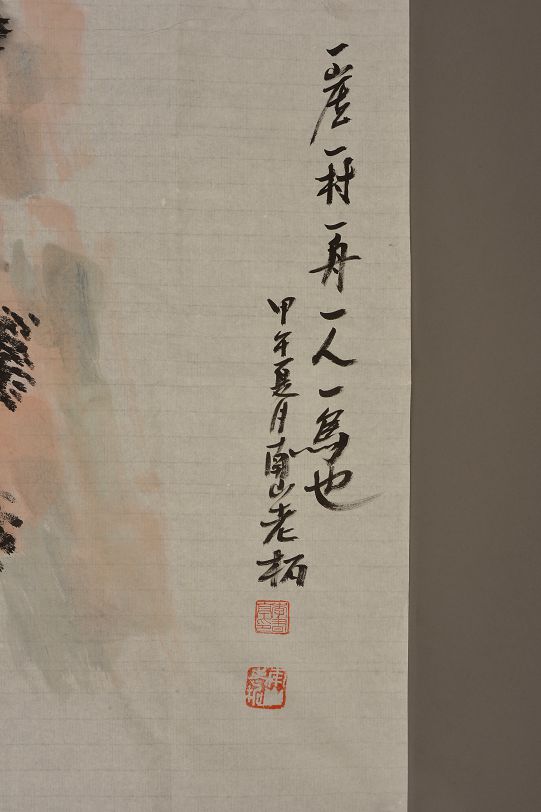 一崖一村一舟一人一鳥也
甲午夏月南山老柄